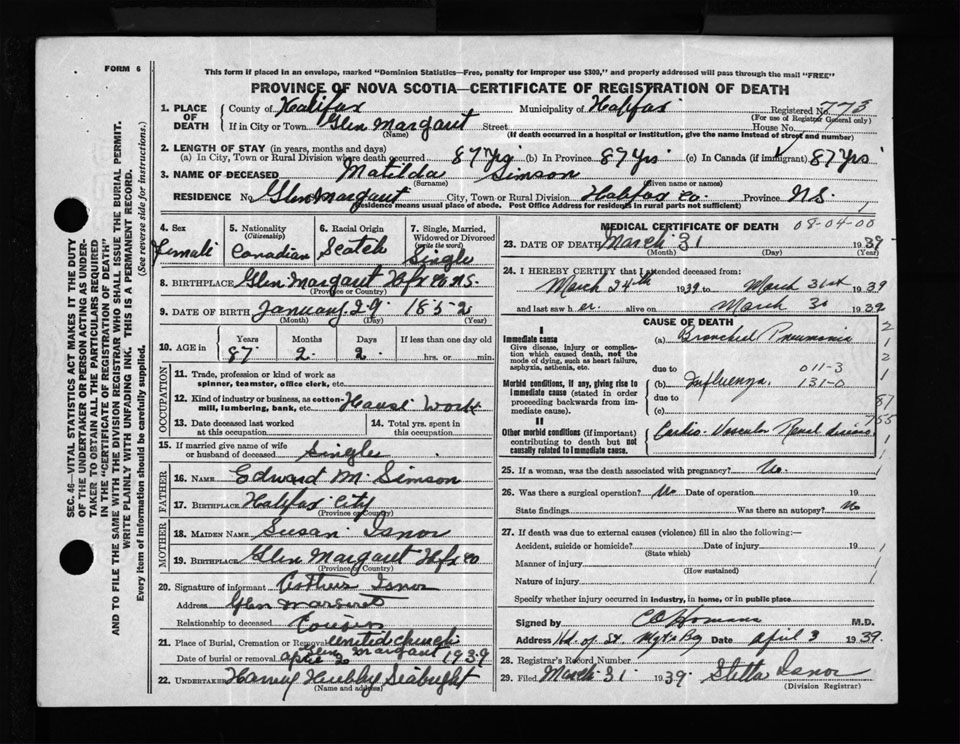 FORM 6
This form if placed in an envelope, marked "Dominion Statistics—Free, penalty for improper use $300," and properly addressed will pass through the mail "FREE"
PROVINCE OF NOVA SCOTIA—CERTIFICATE OF REGISTRATION OF DEATH
1. PLACE OF DEATH County of Halifax Municipality of Halifax Registered No. 773
(For use of Registrar General only)
If in City or Town Glen Margaret Street House No.
(Name) (If death occurred in a hospital or institution, give the name instead of street and number)
2. LENGTH OF STAY (in years, months and days)
(a) In City, Town or Rural Division where death occurred 87 yrs (b) In Province 87 Yrs (c) In Canada (if immigrant) 87 Yrs
3. NAME OF DECEASED Matilda Simson
(Surname) (Given name or names)
RESIDENCE No. Glen Margaret City, Town or Rural Division Halifax Co. Province N.S.
(Residence means usual place of abode. Post Office Address for residents in rural parts not sufficient)
4. Sex Female
5. Nationality (Citizenship) Canadian
6. Racial Origin Scotch
7. Single, Married, Widowed or Divorced (write the word) Single
8. BIRTHPLACE Glen Margaret Hfx Co N.S.
(Province or Country)
9. DATE OF BIRTH January 29 1852
(Month) (Day) (Year)
10. AGE in Years Months Days If less than one day old
87 2 2 hrs. or min.
OCCUPATION
11. Trade, profession or kind of work as spinner, teamster, office clerk, etc.
12. Kind of industry or business, as cotton-mill, lumbering, bank, etc. House Work
13. Date deceased last worked at this occupation
14. Total yrs. spent in this occupation
15. If married give name of wife or husband of deceased Single
FATHER
16. Name Edward M. Simson
17. Birthplace Halifax City
(Province or Country)
MOTHER
18. MAIDEN NAME Susan Isnor
19. BIRTHPLACE Glen Margaret Hfx Co
(Province or Country)
20. Signature of informant Isnor
Address Glen Margaret
Relationship to deceased Cousin
21. Place of Burial, Cremation or Removal United Church Glen Margaret
Date of burial or removal April 2 1939
22. UNDERTAKER Harvey Hubley Seabright
(Name and address)
MEDICAL CERTIFICATE OF DEATH 08-04-00
23. DATE OF DEATH March 31 1939
(Month) (Day) (Year)
24. I HEREBY CERTIFY that I attended deceased from:
March 24th 1939 to March 31st 1939
and last saw her alive on March 30 1939
CAUSE OF DEATH
I
Immediate cause (a) Bronchial Pneumonia
Give disease, injury or complication which caused death, not the mode of dying, such as heart failure, asphyxia, asthenia, etc.
due to 011-3
Morbid conditions, if any, giving rise to immediate cause (stated in order proceeding backwards from immediate cause).
(b) Influenza 131-0
due to
(c)
II
Other morbid conditions (if important) contributing to death but not causally related to immediate cause.
Cardio-Vascular Renal disease
25. If a woman, was the death associated with pregnancy? No.
26. Was there a surgical operation? No Date of operation 19
State findings Was there an autopsy? No
27. If death was due to external causes (violence) fill in also the following:—
Accident, suicide or homicide? Date of injury 19
(State which)
Manner of injury
(How sustained)
Nature of injury
Specify whether injury occurred in industry, in home, or in public place
Signed by M.D.
Address Hd. of St Mgts Bay Date April 3 1939.
28. Registrar's Record Number
29. Filed March 31 1939. Stella Isnor
(Division Registrar)
SEC. 46—VITAL STATISTICS ACT MAKES IT THE DUTY OF THE UNDERTAKER OR PERSON ACTING AS UNDERTAKER TO OBTAIN ALL THE PARTICULARS REQUIRED IN THE "CERTIFICATE OF REGISTRATION OF DEATH" AND TO FILE THE SAME WITH THE DIVISION REGISTRAR WHO SHALL ISSUE THE BURIAL PERMIT.
WRITE PLAINLY WITH UNFADING INK. THIS IS A PERMANENT RECORD.
Every item of information should be carefully supplied. (See reverse side for instructions.)